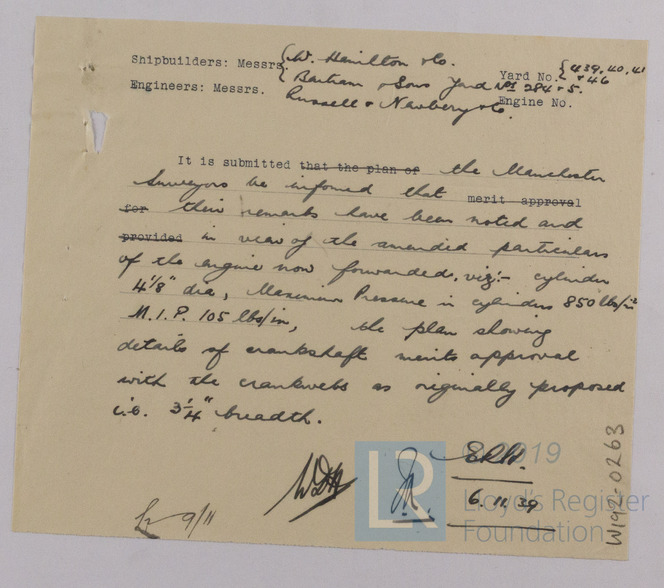 Shipbuilders: Messrs. { W. Hamilton & Co. Yard No. { 439, 40, 41 & 46
{ Bartram & Sons Yard Nos 284 & 5.
Engineers: Messrs. Russell & Newbery & Co. Engine No.
It is submitted that the plan of the Manchester
Surveyors be informed that merit approval
for their remarks have been noted and
provided in view of the amended particulars
of the engine now forwarded, viz:- cylinder
4 1/8" dia, Maximum Pressure in cylinders 850 lbs/in²
M.I.P. 105 lbs/in, the plan showing
details of crankshaft merits approval
with the crankwebs as originally proposed
i.e. 3 1/4" breadth.
6.11.39
9/11
© 2019
Lloyd's Register
Foundation
LR
W192-0263